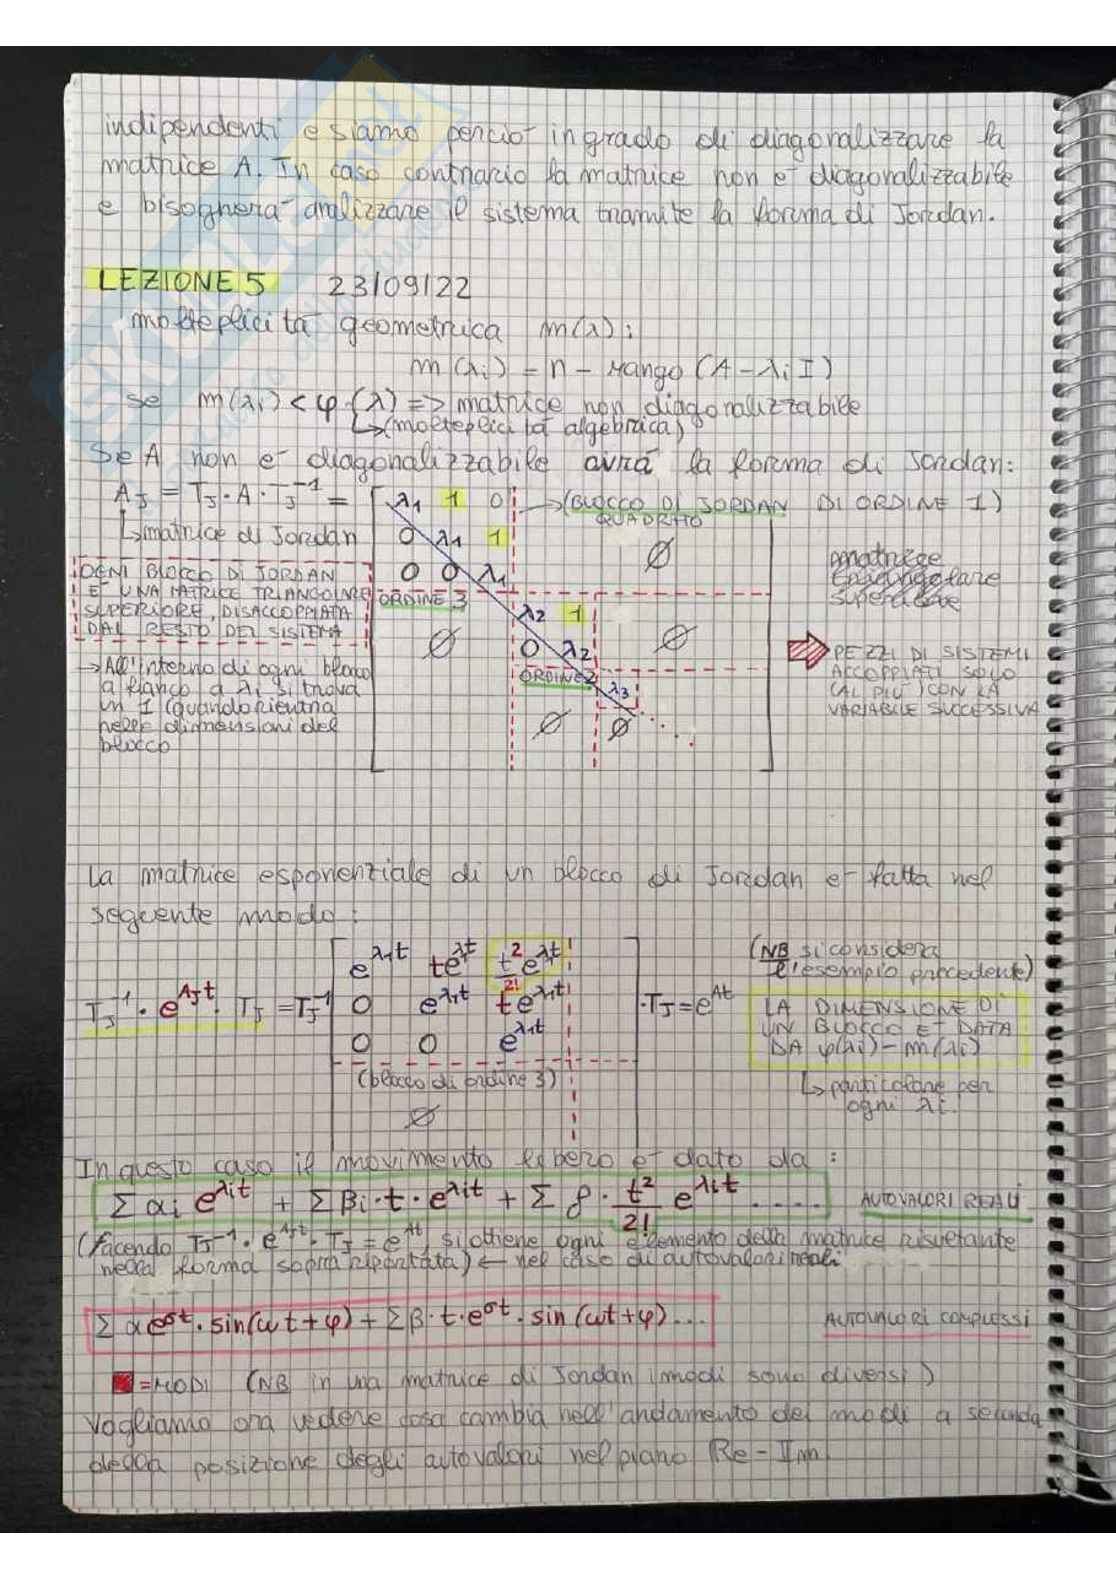 indipendenti e siamo perciò in grado di diagonalizzare la
matrice A. In caso contrario la matrice non è diagonalizzabile
e bisognerà analizzare il sistema tramite la forma di Jordan.
LEZIONE 5 23/09/22
molteplicità geometrica m(λ):
m(λi) = n - rango (A - λi I)
se m(λi) < φ(λ) => matrice non diagonalizzabile
↳(molteplicità algebrica)
Se A non è diagonalizzabile avrà la forma di Jordan:
AJ = TJ · A · TJ⁻¹ =
↳matrice di Jordan
λ1 1 0 →(BLOCCO DI JORDAN DI ORDINE 1)
QUADRATO
0 λ1 1
0 0 λ1
ORDINE 3
λ2 1
0 λ2
ORDINE 2
λ3
∅ ∅ ∅ ∅ ∅
OGNI BLOCCO DI JORDAN
È UNA MATRICE TRIANGOLARE
SUPERIORE, DISACCOPPIATA
DAL RESTO DEL SISTEMA
→All'interno di ogni blocco
a fianco a λi si trova
un 1 (quando rientra
nelle dimensioni del
blocco
matrice
triangolare
superiore
PEZZI DI SISTEMI
ACCOPPIATI SOLO
(AL PIÙ) CON LA
VARIABILE SUCCESSIVA
La matrice esponenziale di un blocco di Jordan è fatta nel
seguente modo:
TJ⁻¹ · e^AJt · TJ = TJ⁻¹
e^λ1t te^λ1t t²/2! e^λ1t
0 e^λ1t te^λ1t
0 0 e^λ1t
(blocco di ordine 3)
∅
· TJ = e^At
(NB si considera
l'esempio precedente)
LA DIMENSIONE DI
UN BLOCCO È DATA
DA φ(λi) - m(λi)
↳particolare per
ogni λi.
In questo caso il movimento libero è dato da :
Σ αi e^λit + Σ βi · t · e^λit + Σ γ · t²/2! e^λit ..... AUTOVALORI REALI
(Facendo TJ⁻¹ · e^AJt · TJ = e^At, si ottiene ogni elemento della matrice risultante
nella forma sopra riportata) ← nel caso di autovalori reali
Σ α e^σt · sin(ωt+φ) + Σ β · t · e^σt · sin(ωt+φ)... AUTOVALORI COMPLESSI
= MODI (NB in una matrice di Jordan i modi sono diversi)
Vogliamo ora vedere cosa cambia nell'andamento dei modi a seconda
della posizione degli autovalori nel piano Re-Im.